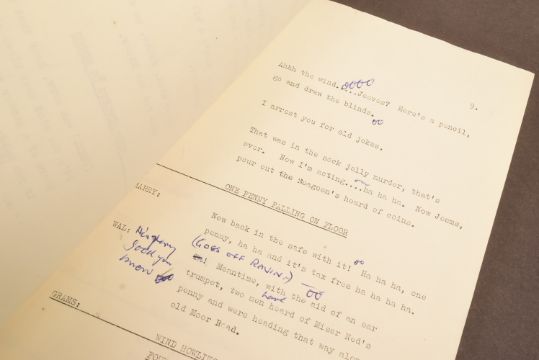 9.
Ahhh the wind.....Jeeves? Here's a pencil,
go and draw the blinds.
I arrest you for old jokes.
That was in the mock jolly murder, that's
over. Now I'm acting....ha ha ha. Now Jeems,
pour out the Neagoen's hoard of coins.
ONE PENNY FALLING ON FLOOR
LARRY:
Now back in the safe with it! Ha ha ha, one
penny, ha ha and it's tax free ha ha ha ha.
(GOES OFF RAVING)
WAL:
you
know
Meantime, with the aid of an ear
trumpet, two men heard of Miser Ned's
have
penny and were heading that way along
old Moor Road.
GRAMS:
WIND HOWLING